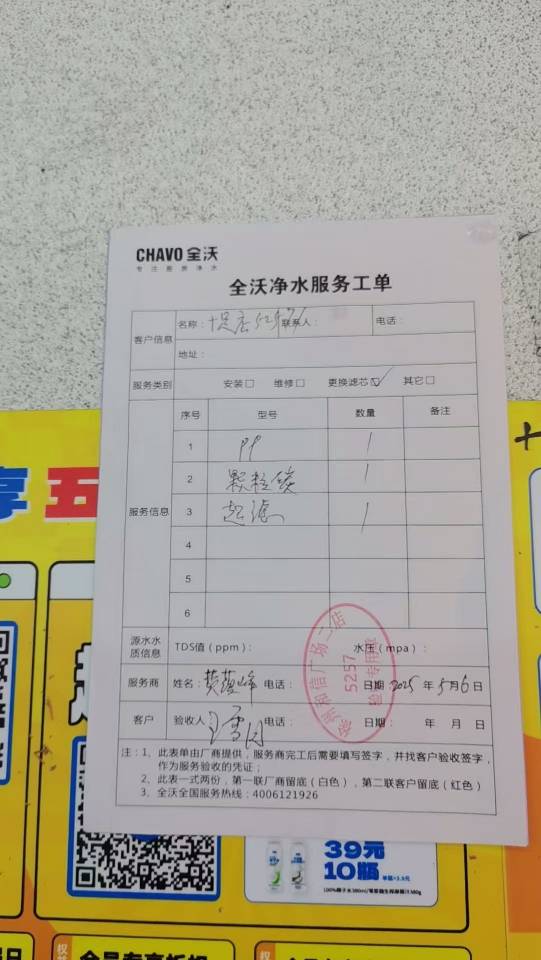 CHAVO 全沃
专注厨房净水
全沃净水服务工单
客户信息
名称：十足店5257 联系人： 电话：
地址：
服务类别 安装□ 维修□ 更换滤芯☑ 其它□
服务信息
序号 型号 数量 备注
1 PP 1
2 颗粒炭 1
3 超滤 1
4
5
6
源水水质信息 TDS值（ppm）： 水压（mpa）：
服务商 姓名： 电话： 日期：2025年5月6日
客户 验收人 电话： 日期： 年 月 日
和信广场二店
5257
验 专用章
注：1、此表单由厂商提供，服务商完工后需要填写签字，并找客户验收签字，
作为服务验收的凭证；
2、此表一式两份，第一联厂商留底（白色），第二联客户留底（红色）
3、全沃全国服务热线：4006121926
享 五
十
39元
10瓶